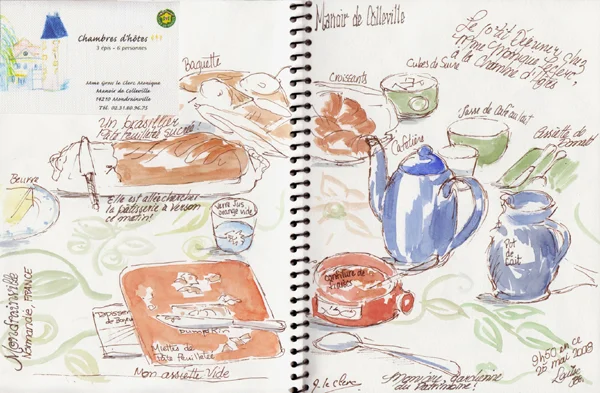 Chambres d'hôtes
3 épis - 6 personnes
Mme Gros le Clerc Monique
Manoir de Colleville
14210 Mondrainville
Tél. 02.31.80.96.75
Baguette
Un brésillier
Pâte feuilletée sucrée
Beurre
Elle est allée chercher
la pâtisserie à Verson
ce matin!
Verre Jus
orange vide
Mondrainville
Normandie, FRANCE
Miettes de
Pâte feuilletée
Mon assiette vide
Manoir de Colleville
Le petit Déjeuner chez
Mme Monique Leclerc,
à la chambre d'hôtes
Croissants
Cubes de Sucre
Tasse de Café au lait
Assiette de
Cafetière
Pot
de
Lait
confiture de
fraises
g. le clerc
Monique, gardienne
du Patrimoine!
9h50 en ce
25 mai 2008